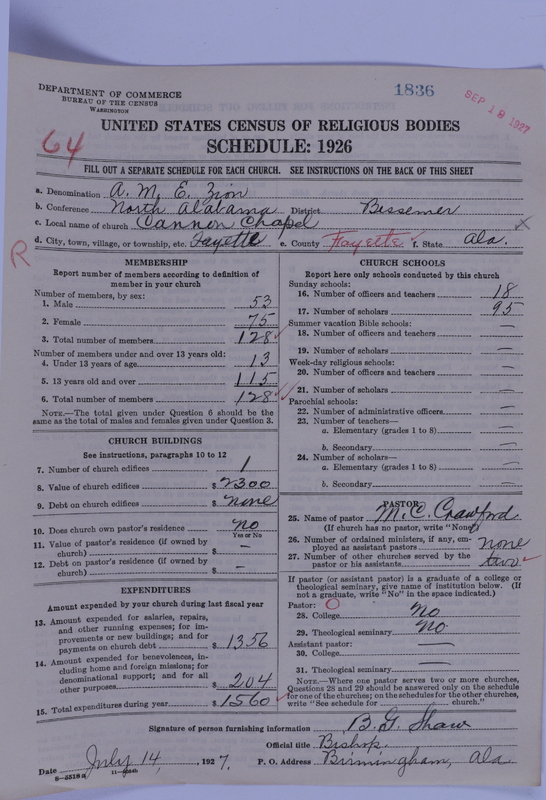 1836
SEP 18 1927
DEPARTMENT OF COMMERCE
BUREAU OF THE CENSUS
WASHINGTON
64
UNITED STATES CENSUS OF RELIGIOUS BODIES
SCHEDULE: 1926
FILL OUT A SEPARATE SCHEDULE FOR EACH CHURCH. SEE INSTRUCTIONS ON THE BACK OF THIS SHEET
a. Denomination A. M. E. Zion
b. Conference North Alabama District Bessemer
c. Local name of church Cannon Chapel X
d. City, town, village, or township, etc. Fayette e. County Fayette f. State Ala.
R
MEMBERSHIP
Report number of members according to definition of
member in your church
Number of members, by sex:
1. Male 53
2. Female 75
3. Total number of members 128
Number of members under and over 13 years old:
4. Under 13 years of age 13
5. 13 years old and over 115
6. Total number of members 128
NOTE.—The total given under Question 6 should be the
same as the total of males and females given under Question 3.
CHURCH BUILDINGS
See instructions, paragraphs 10 to 12
7. Number of church edifices 1
8. Value of church edifices $2300
9. Debt on church edifices $none
10. Does church own pastor's residence No
Yes or No
11. Value of pastor's residence (if owned by
church) $ —
12. Debt on pastor's residence (if owned by
church) $ —
EXPENDITURES
Amount expended by your church during last fiscal year
13. Amount expended for salaries, repairs,
and other running expenses; for im-
provements or new buildings; and for
payments on church debt $1356
14. Amount expended for benevolences, in-
cluding home and foreign missions; for
denominational support; and for all
other purposes $204
15. Total expenditures during year $1560
CHURCH SCHOOLS
Report here only schools conducted by this church
Sunday schools:
16. Number of officers and teachers 18
17. Number of scholars 95
Summer vacation Bible schools:
18. Number of officers and teachers —
19. Number of scholars —
Week-day religious schools:
20. Number of officers and teachers —
21. Number of scholars —
Parochial schools:
22. Number of administrative officers —
23. Number of teachers—
a. Elementary (grades 1 to 8) —
b. Secondary —
24. Number of scholars—
a. Elementary (grades 1 to 8) —
b. Secondary —
PASTOR
25. Name of pastor M. C. Crawford
(If church has no pastor, write "None")
26. Number of ordained ministers, if any, em-
ployed as assistant pastors none
27. Number of other churches served by the
pastor or his assistants two
If pastor (or assistant pastor) is a graduate of a college or
theological seminary, give name of institution below. (If
not a graduate, write "No" in the space indicated.)
Pastor:
28. College No
29. Theological seminary No
Assistant pastor:
30. College —
31. Theological seminary —
NOTE.—Where one pastor serves two or more churches,
Questions 28 and 29 should be answered only on the schedule
for one of the churches; on the schedules for the other churches,
write "See schedule for church."
Signature of person furnishing information B. G. Shaw
Official title Bishop
Date July 14, 1927. P. O. Address Birmingham, Ala